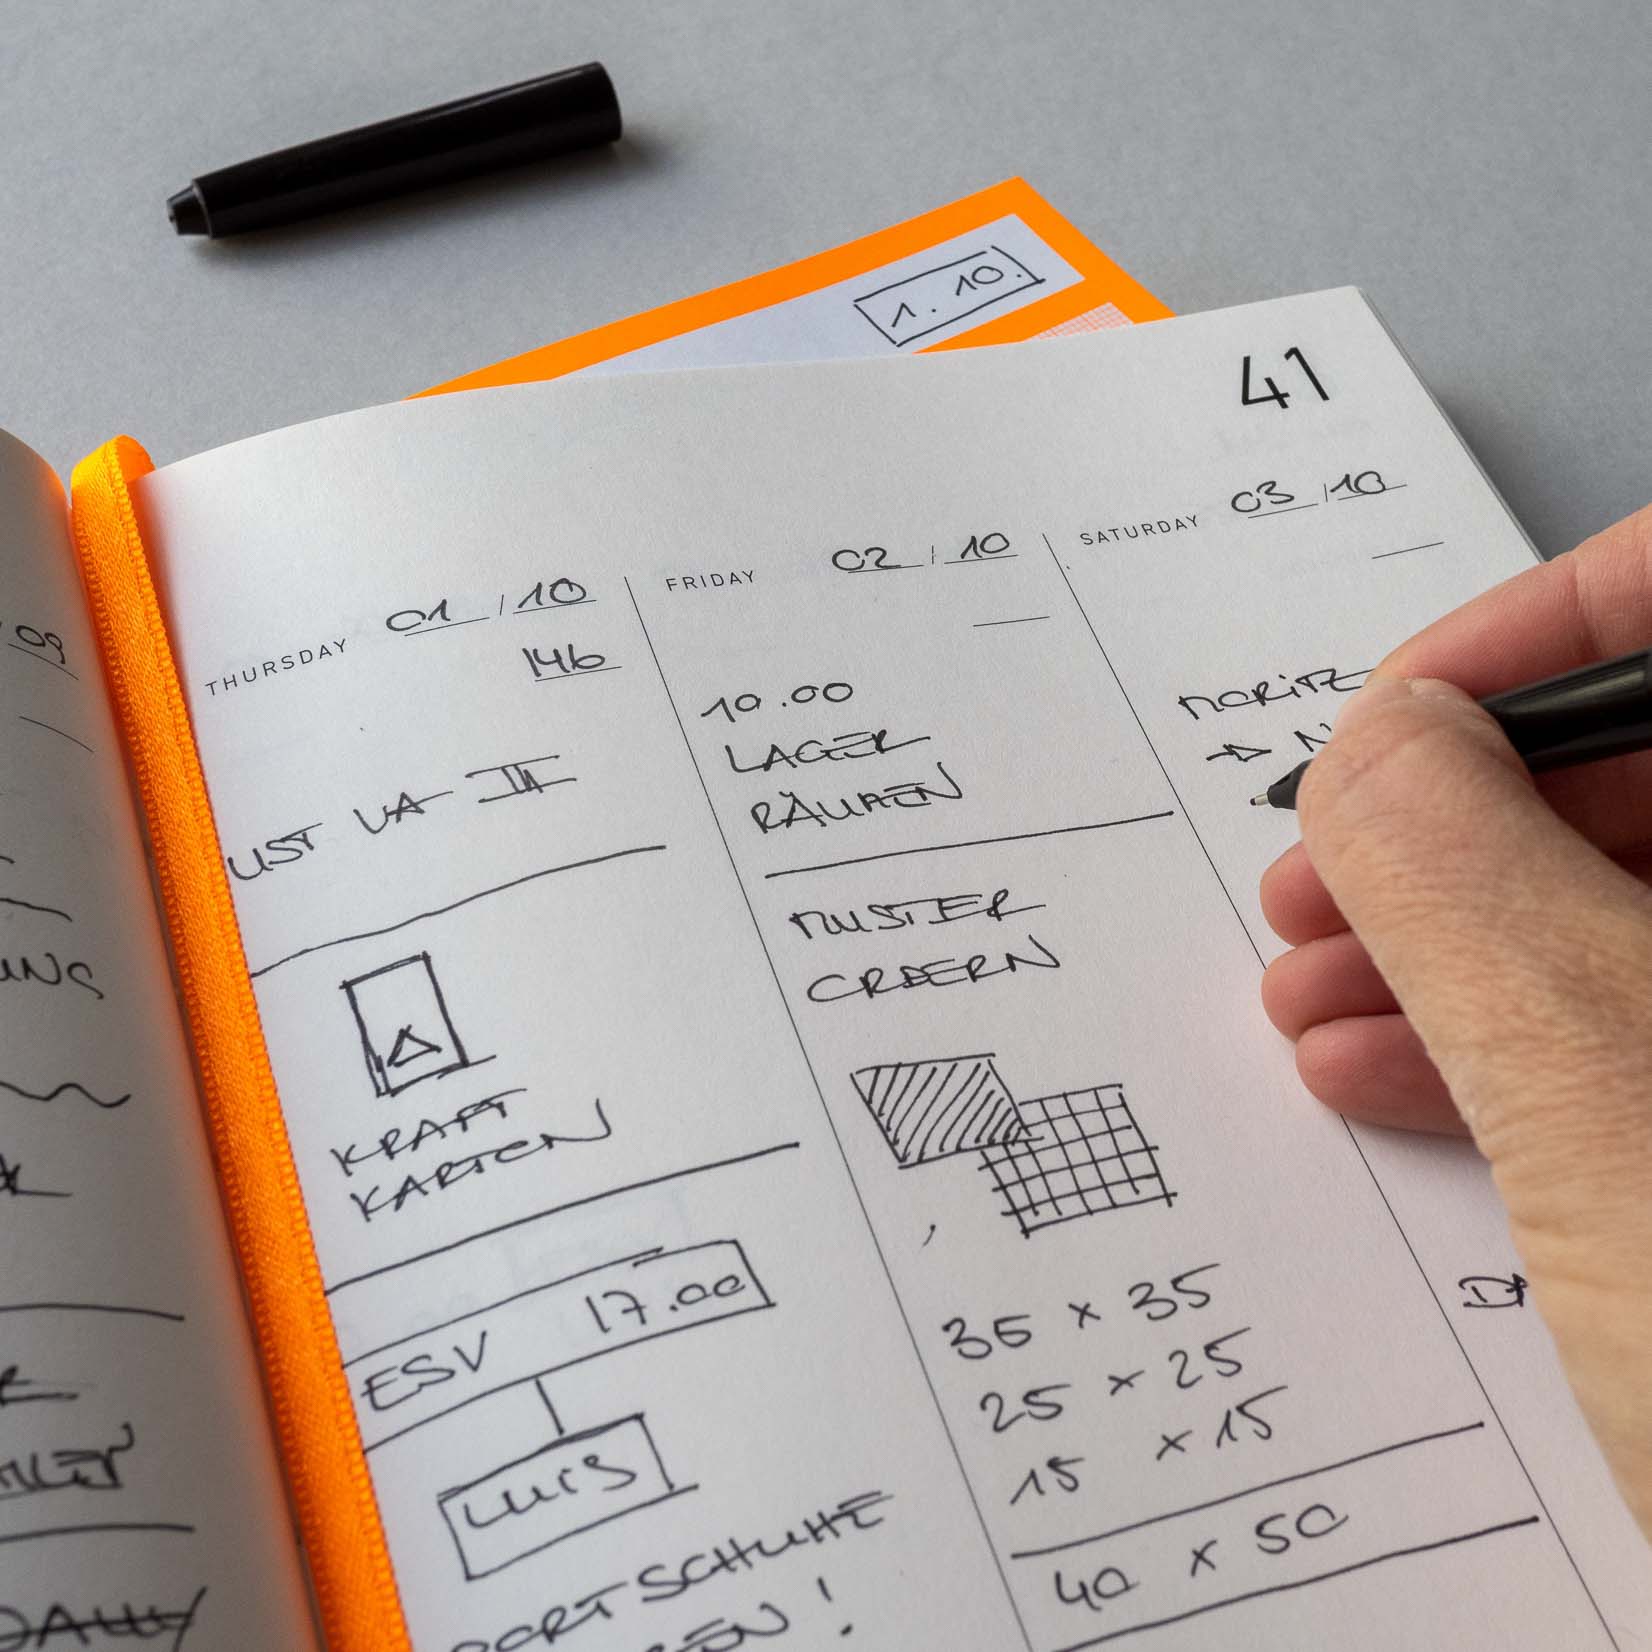 1. 10.
41
THURSDAY 01 / 10
146
UST VA III
KRAFT
KARTEN
ESV 17.00
LUIS
SCHUHE
!
FRIDAY 02 / 10
10.00
LAGER
RÄUMEN
MUSTER
ORDERN
35 x 35
25 x 25
15 x 15
40 x 50
SATURDAY 03 / 10
MORITZ
→ N